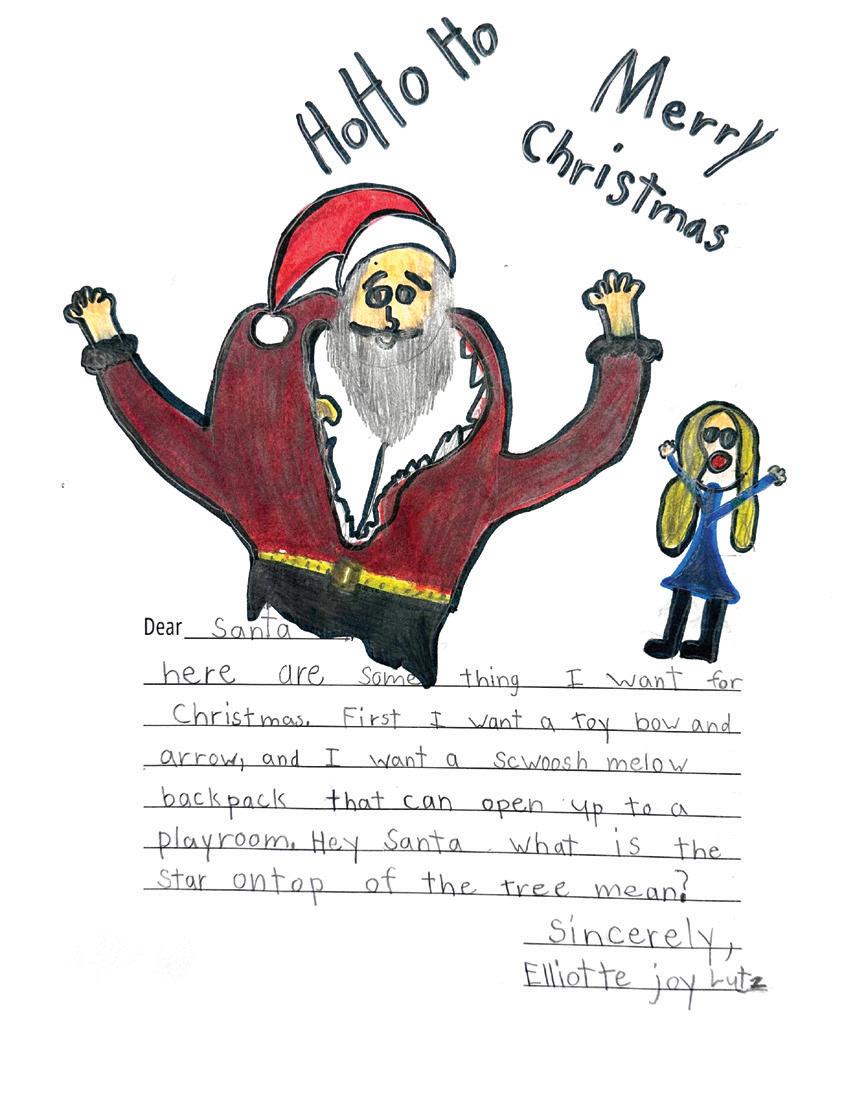 HoHo Ho
Merry
Christmas
Dear Santa
here are some thing I want for
Christmas. First I want a toy bow and
arrow, and I want a scwoosh melow
backpack that can open up to a
playroom. Hey Santa what is the
star ontop of the tree mean?
Sincerely,
Elliotte joy Lutz